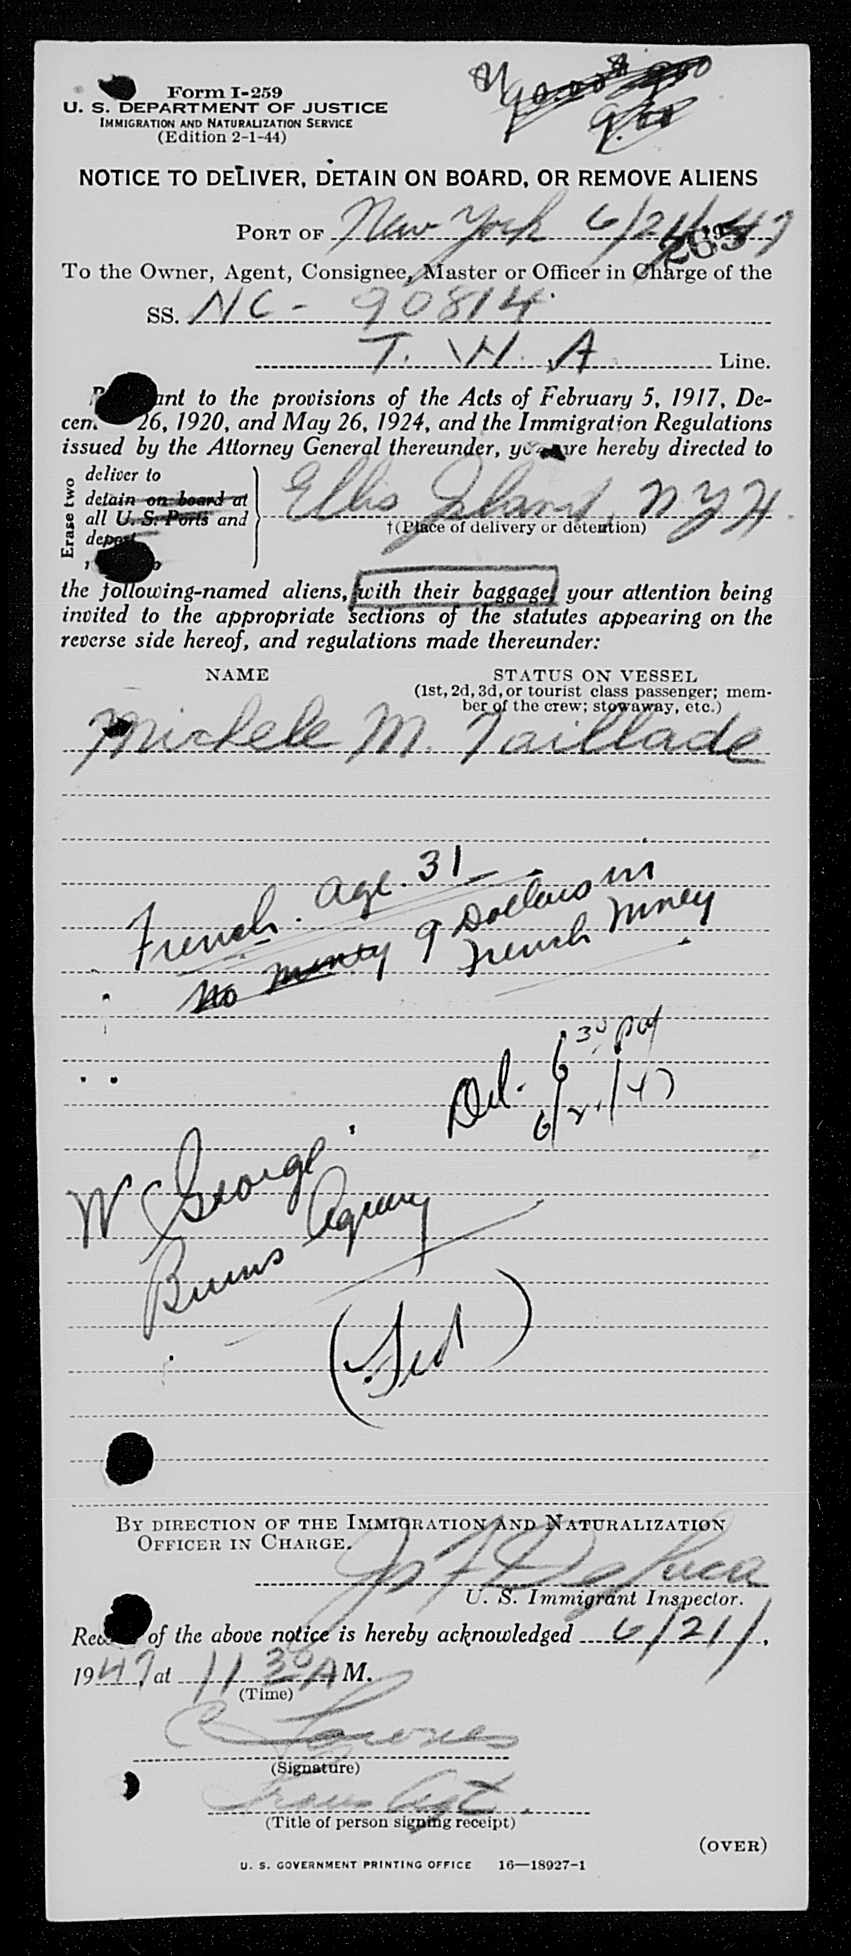 Form I-259
U. S. DEPARTMENT OF JUSTICE
IMMIGRATION AND NATURALIZATION SERVICE
(Edition 2-1-44)
NOTICE TO DELIVER, DETAIN ON BOARD, OR REMOVE ALIENS
PORT OF New York 6/21/47
265
To the Owner, Agent, Consignee, Master or Officer in Charge of the
SS. NC- 90814
T. W. A Line.
to the provisions of the Acts of February 5, 1917, De-
26, 1920, and May 26, 1924, and the Immigration Regulations
issued by the Attorney General thereunder, you are hereby directed to
Erase two
deliver to
detain on board at
all U. S. Ports and
deport
Ellis Island, N Y H.
†(Place of delivery or detention)
the following-named aliens, with their baggage, your attention being
invited to the appropriate sections of the statutes appearing on the
reverse side hereof, and regulations made thereunder:
NAME
STATUS ON VESSEL
(1st, 2d, 3d, or tourist class passenger; mem-
ber of the crew; stowaway, etc.)
Michele M. Taillade
French. age. 31
No money 9 Dollars in
French Money
Del. 6 30 PM
6/21/47
W George
Burns Agency
BY DIRECTION OF THE IMMIGRATION AND NATURALIZATION
OFFICER IN CHARGE.
U. S. Immigrant Inspector.
of the above notice is hereby acknowledged 6/21/,
1947, at 11 30 A M.
(Time)
(Signature)
Trans Agt.
(Title of person signing receipt)
(OVER)
U. S. GOVERNMENT PRINTING OFFICE 16—18927-1